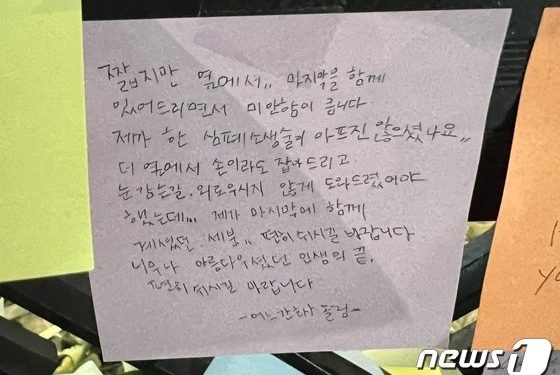 짧지만 옆에서,, 마지막을 함께
있어드리면서 미안함이 큽니다
제가 한 심폐소생술이 아프진 않으셨나요,,
더 옆에서 손이라도 잡아드리고
눈 감는길. 외로우시지 않게 도와드렸어야
했는데,,, 제가 마지막에 함께
계셨던. 세분,, 편히 쉬시길 바랍니다
너무나 아름다우셨던 인생의 끝.
편히 쉬시길 바랍니다
-어느 간호사 올림-
news1